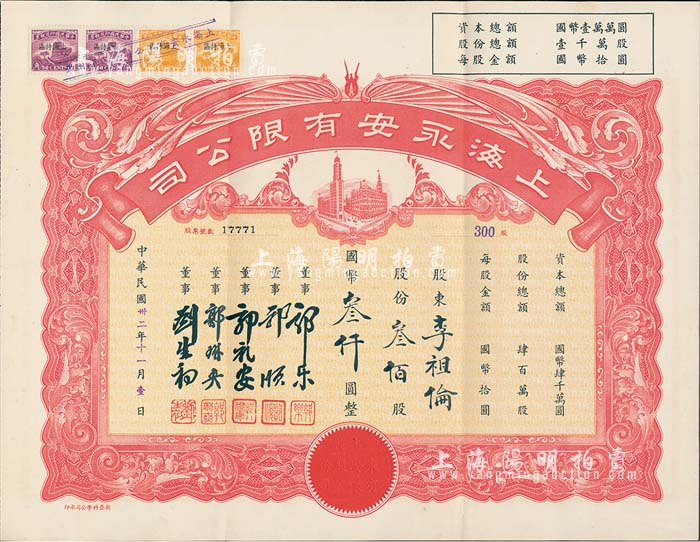 資本總額 國幣壹萬萬圓
股份總額 壹千萬股
每股金額 國幣拾圓
上海永安有限公司
300股
股票號數 17771
資本總額 國幣肆千萬圓
股份總額 肆百萬股
每股金額 國幣拾圓
股東 李祖倫
股份 叁佰 股
國幣 叁仟 圓整
董事 郭乐
董事 郭順
董事 郭礼安
董事 郭琳爽
董事 劉生初
中華民國卅二年十一月壹日
上海陽明拍賣
www.yangmingauction.com
上海陽明拍賣
www.yangmingauction.com
上海陽明拍賣
www.yangmingauction.com